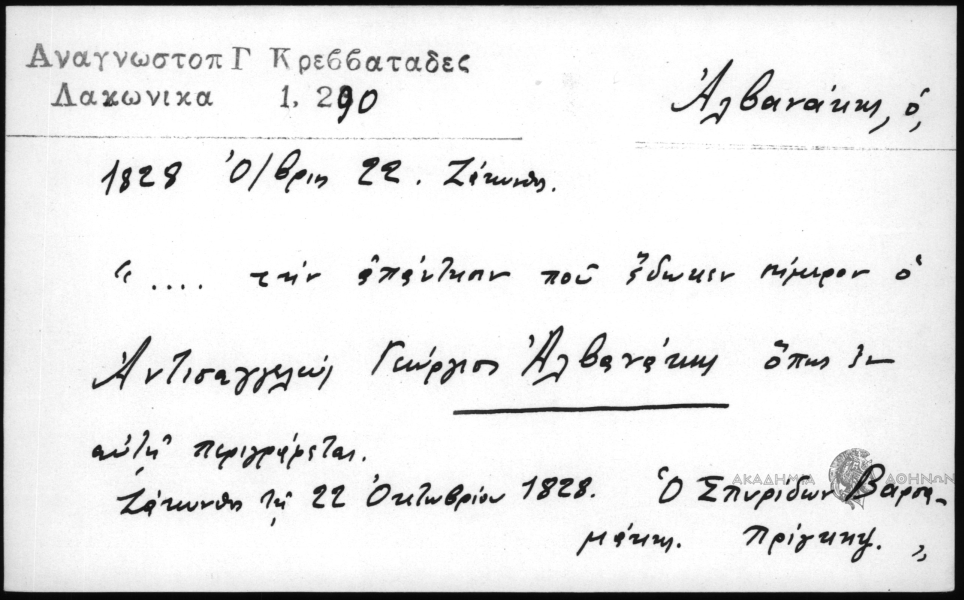 Αναγνωστοπ Γ Κρεββαταδες
Λακωνικα 1, 290
Ἀλβανάκης, ὁ,
1828 Ὀ/βρις 22. Ζάκυνθος.
“.... τὴν ἀπάντησιν ποῦ ἔδωκεν σήμερον ὁ
Ἀντισαγγελεύς Γεώργιος Ἀλβανάκης ὅπως ἐν
αὐτῇ περιγράφεται.
Ζάκυνθος τῇ 22 Ὀκτωβρίου 1828. Ὁ Σπυρίδων Βαρσα-
μάκης. Πρίγκηψ. ”
ΑΚΑΔΗΜΙΑ ΑΘΗΝΩΝ